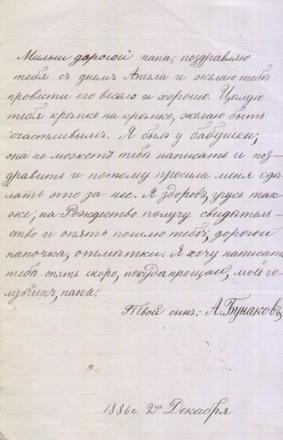 Милый дорогой папа, поздравляю
тебя съ днемъ Ангела и желаю тебѣ
провести его весело и хорошо. Цѣлую
тебя крѣпко на крѣпко, желаю быть
счастливымъ. Я былъ у бабушки,
она не можетъ тебѣ написать и поз-
дравить и потому просила меня сдѣ-
лать это за нее. Я здоровъ, учусь так-
же; на Рождество получу свидѣтель-
ство и опять пошлю тебѣ, дорогой
папочка, отмѣтки. Я хочу написать
тебѣ опять скоро, покуда прощай, мой го-
лубчикъ, папа.
Твой сынъ: А. Бунаковъ
1886 г. 2го Декабря